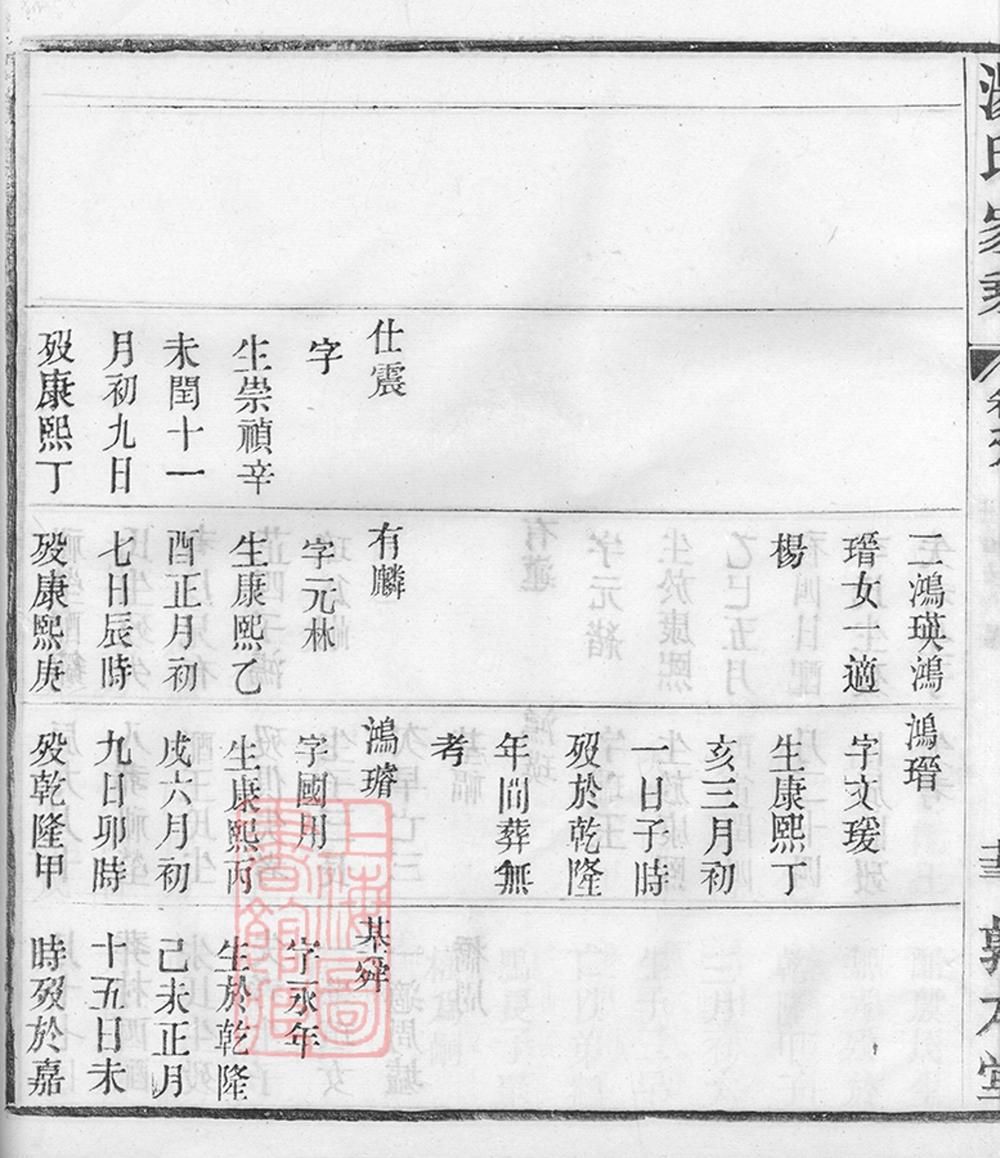 氏家乘
敦本堂
仕震
字
生崇禎辛
未閏十一
月初九日
歿康熙丁
二鴻瑛鴻
瑨女一適
楊
有麟
字元林
生康熙乙
酉正月初
七日辰時
歿康熙庚
鴻瑨
字文瑗
生康熙丁
亥三月初
一日子時
歿於乾隆
年間葬無
考
鴻璿
字國用
生康熙丙
戌六月初
九日卯時
歿乾隆甲
基舜
字承年
生於乾隆
己未正月
十五日未
時歿於嘉
上海圖書館藏